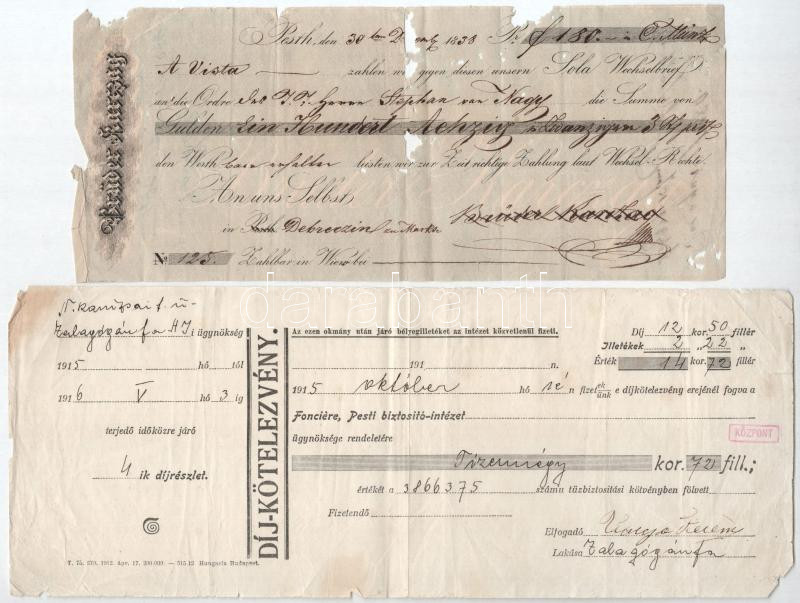 Pesth, den 30 ten 1838 Pr f 180.—
A Vista zahlen wir gegen diesen unsern Sola Wechselbrief
an die Ordre des Herrn Stephan von Nagy die Summe von
Gulden Ein Hundert Achzig in Zwanzigern 3
den Werth leisten wir zur Zeit richtige Zahlung laut Wechsel-Rechte.
An uns Selbst
in Debreczin
No. 125. Zahlbar in Wien bei
Brüder
DÍJ-KÖTELEZVÉNY.
i ügynökség
1915 hó tól
1916 V hó 3 ig
terjedő időközre járó
4 ik díjrészlet.
T. 75. 270. 1912. Apr. 17. 200.000. — 515-12 Hungaria Budapest.
Az ezen okmány után járó bélyegilletéket az intézet közvetlenül fizeti.
Díj 12 kor. 50 fillér
Illetékek 2 „ 22 „
Érték 14 kor. 72 fillér
191 n.
1915 október hó n fizetek/ünk e díjkötelezvény erejénél fogva a
Foncière, Pesti biztosító-intézet
ügynöksége rendeletére
KÖZPONT
Tizennégy kor. 72 fill.;
értékét a 3866375 számu tüzbiztosítási kötvényben fölvett
Fizetendő
Elfogadó
Lakása Zalagógánfa
darabanth